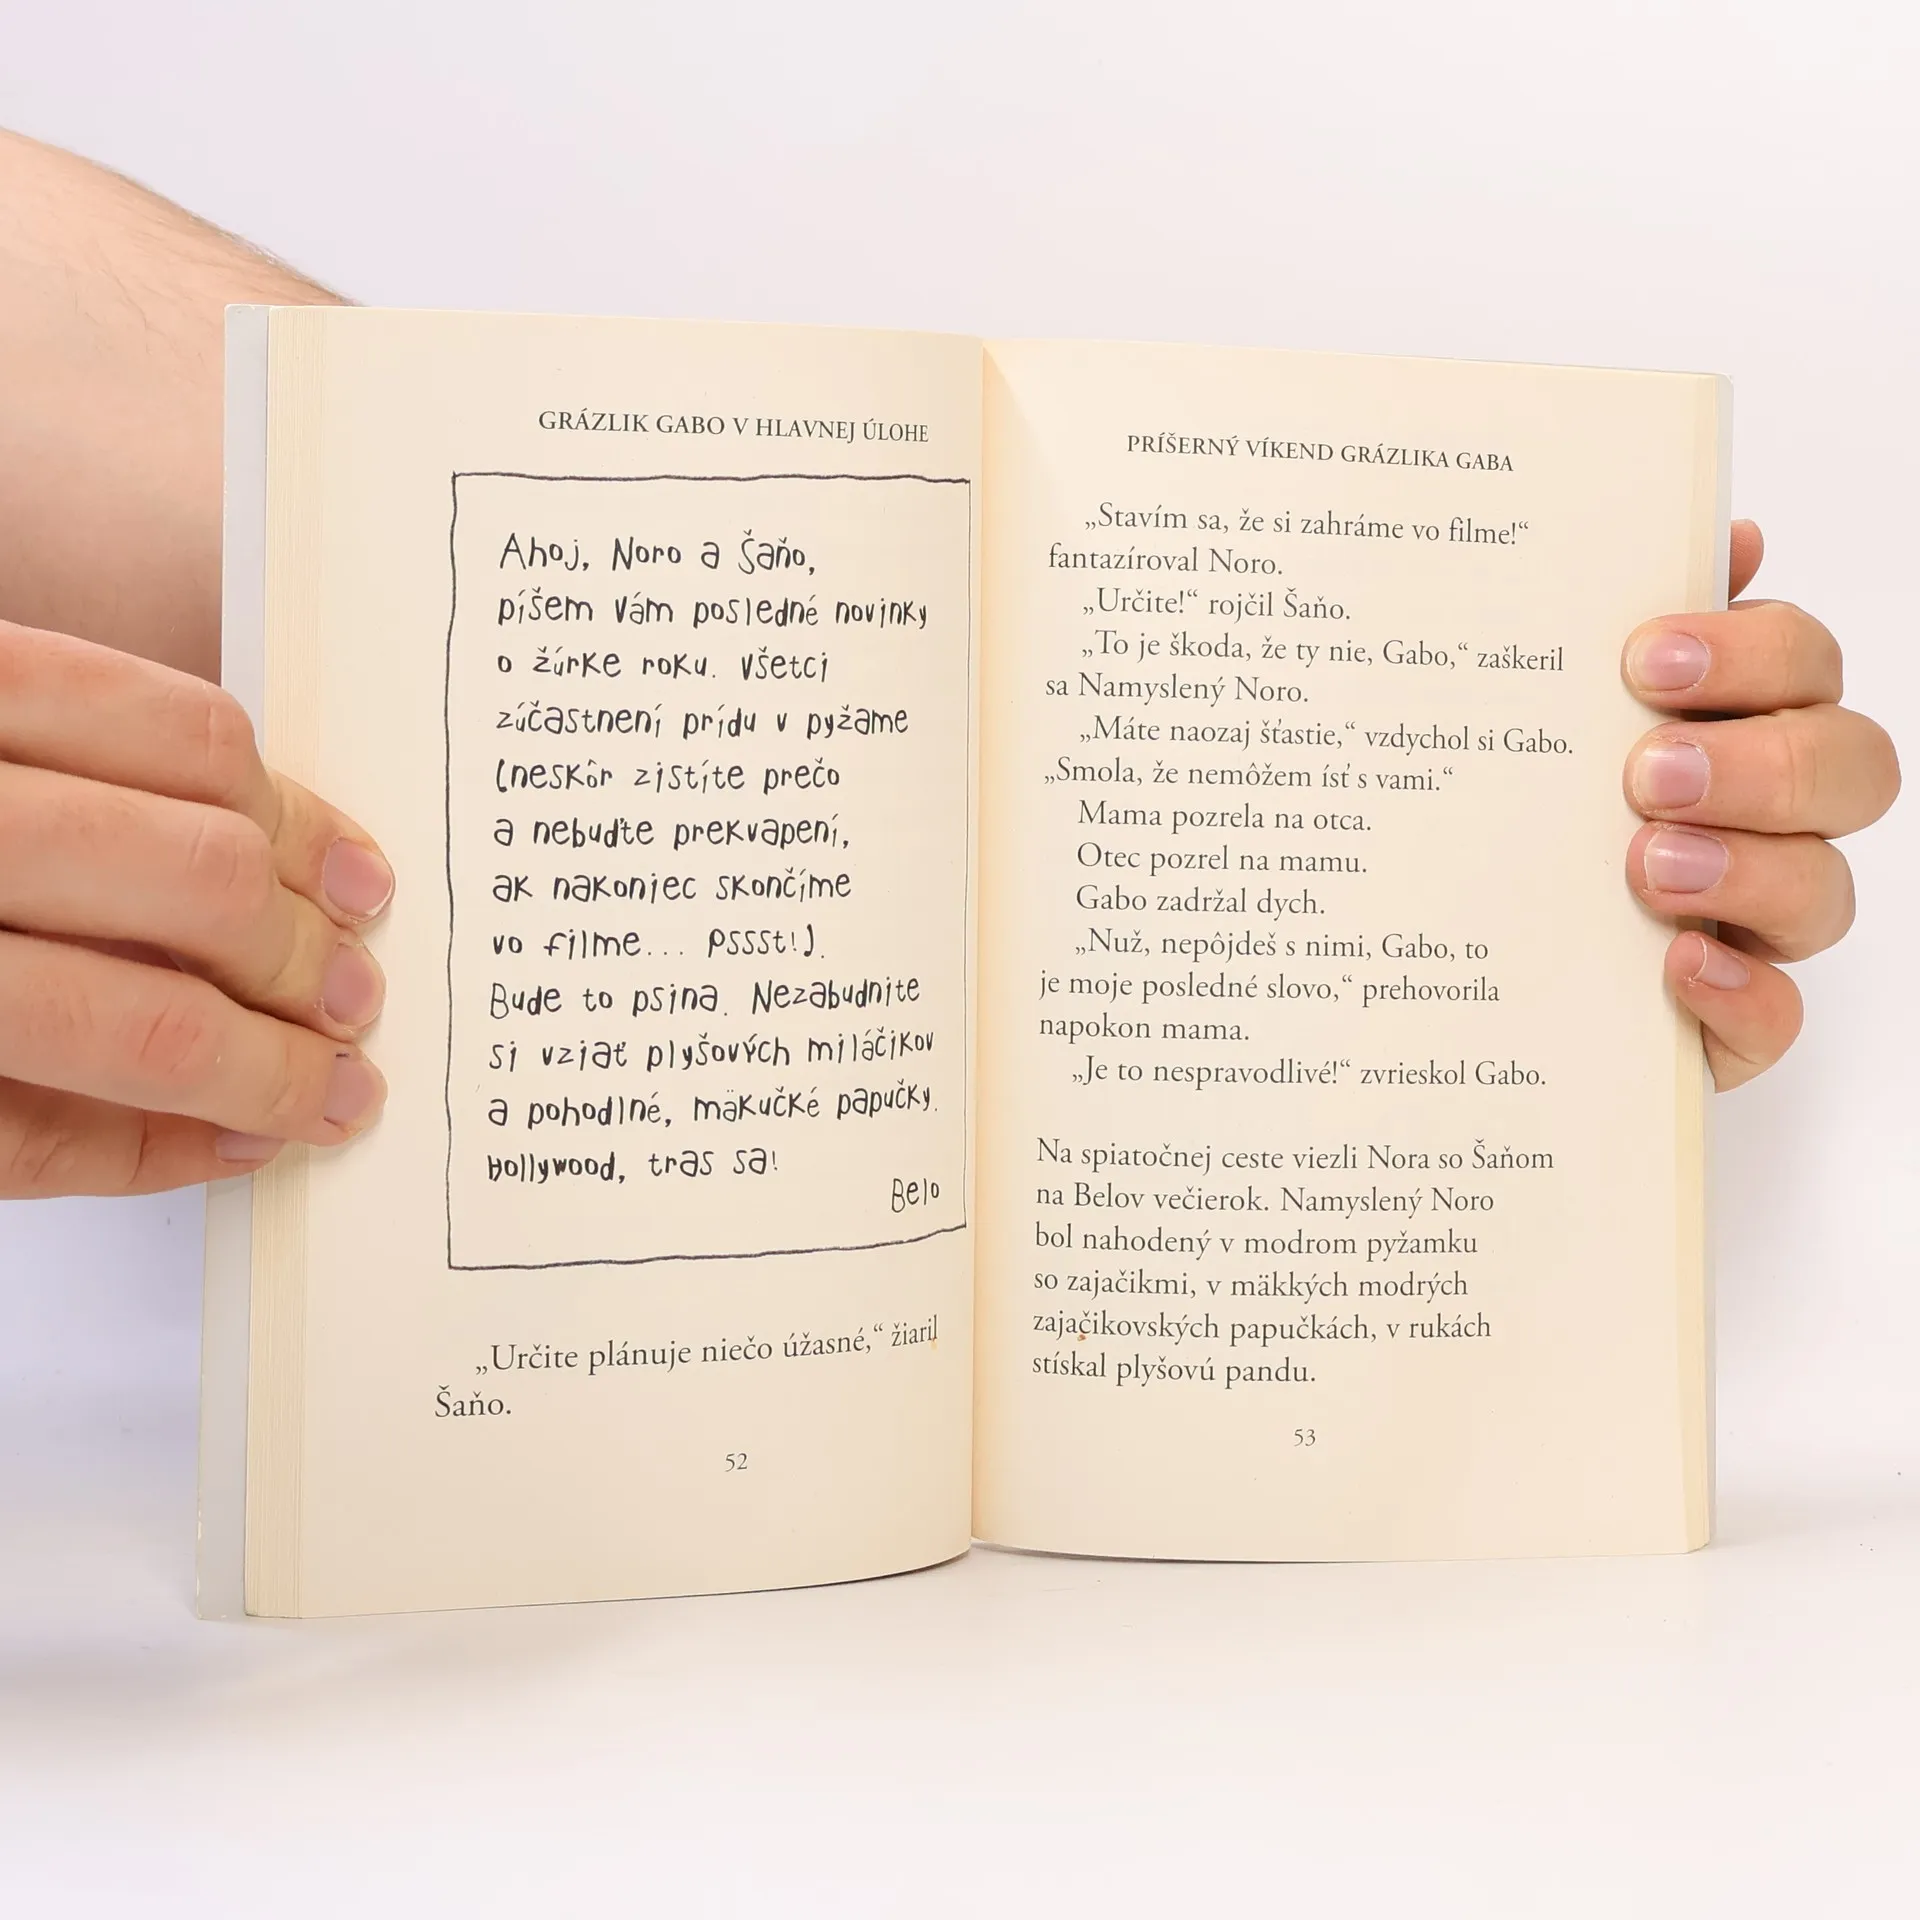 GRÁZLIK GABO V HLAVNEJ ÚLOHE
Ahoj, Noro a Šaňo,
píšem vám posledné novinky
o žúrke roku. Všetci
zúčastnení prídu v pyžame
(neskôr zistíte prečo
a nebuďte prekvapení,
ak nakoniec skončíme
vo filme... Pssst!).
Bude to psina. Nezabudnite
si vziať plyšových miláčikov
a pohodlné, mäkučké papučky.
Hollywood, tras sa!
Belo
„Určite plánuje niečo úžasné,“ žiaril
Šaňo.
52
PRÍŠERNÝ VÍKEND GRÁZLIKA GABA
„Stavím sa, že si zahráme vo filme!“
fantazíroval Noro.
„Určite!“ rojčil Šaňo.
„To je škoda, že ty nie, Gabo,“ zaškeril
sa Namyslený Noro.
„Máte naozaj šťastie,“ vzdychol si Gabo.
„Smola, že nemôžem ísť s vami.“
Mama pozrela na otca.
Otec pozrel na mamu.
Gabo zadržal dych.
„Nuž, nepôjdeš s nimi, Gabo, to
je moje posledné slovo,“ prehovorila
napokon mama.
„Je to nespravodlivé!“ zvrieskol Gabo.
Na spiatočnej ceste viezli Nora so Šaňom
na Belov večierok. Namyslený Noro
bol nahodený v modrom pyžamku
so zajačikmi, v mäkkých modrých
zajačikovských papučkách, v rukách
stískal plyšovú pandu.
53